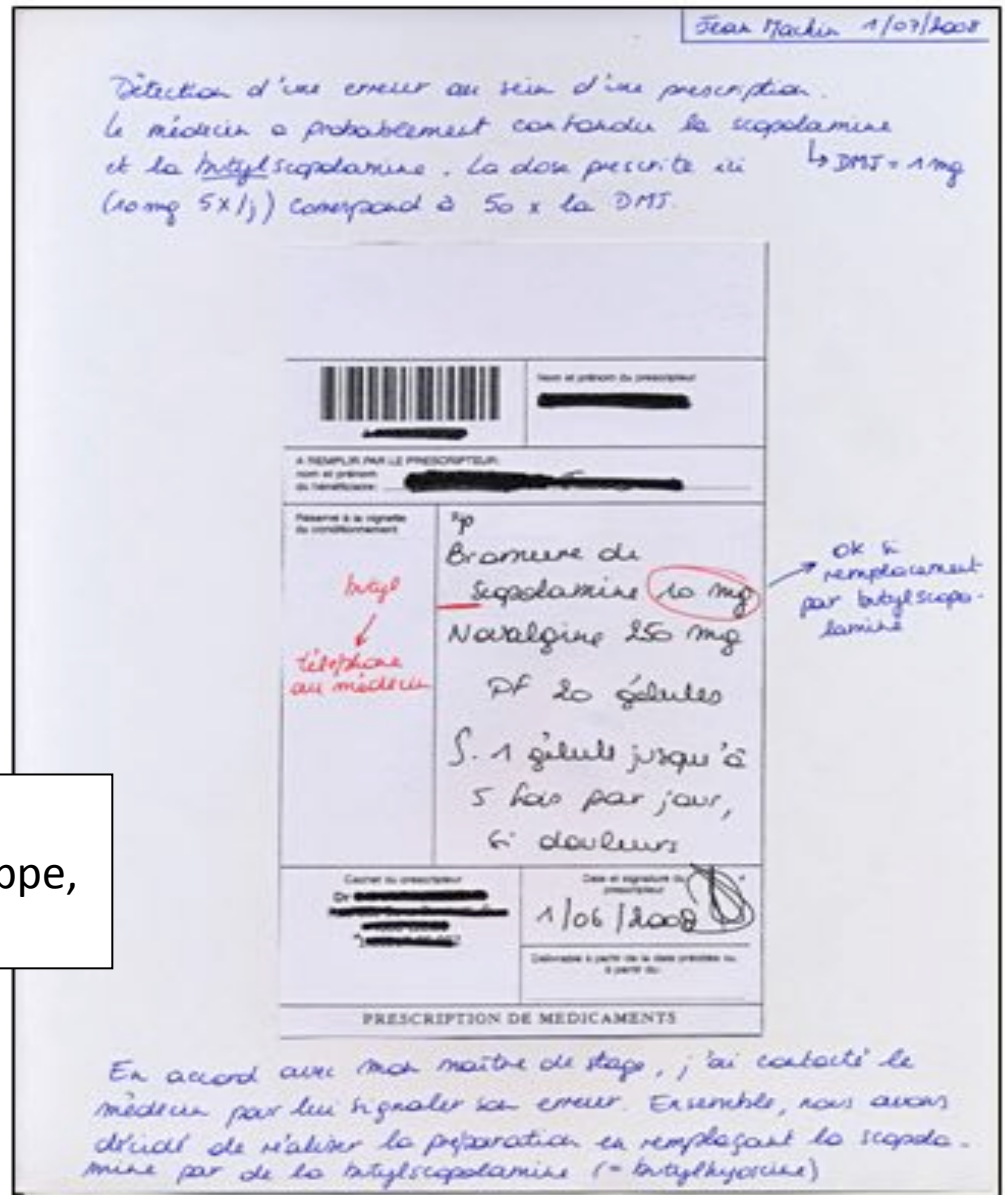 Jean Machin 1/07/2008
Détection d'une erreur au sein d'une prescription.
Le médecin a probablement confondu la scopolamine
et la butylscopolamine. La dose prescrite ici
↳ DMJ = 1 mg
(10 mg 5x/j) correspond à 50 x la DMJ.
Nom et prénom du prescripteur
A REMPLIR PAR LE PRESCRIPTEUR:
nom et prénom
du bénéficiaire
Réservé à la vignette
du conditionnement
R/p
Bromure de
Scopolamine 10 mg
Novalgine 250 mg
Pf 20 gélules
S. 1 gélule jusqu'à
5 fois par jour,
si douleurs
butyl
téléphone
au médecin
ok si
remplacement
par butylscopo-
lamine
ppe,
Cachet du prescripteur
Dr
Date et signature du
prescripteur
1/06/2008
Délivrable à partir de la date précitée ou
à partir du:
PRESCRIPTION DE MEDICAMENTS
En accord avec mon maître de stage, j'ai contacté le
médecin pour lui signaler son erreur. Ensemble, nous avons
décidé de réaliser la préparation en remplaçant la scopola-
mine par de la butylscopolamine (= butylhyoscine)